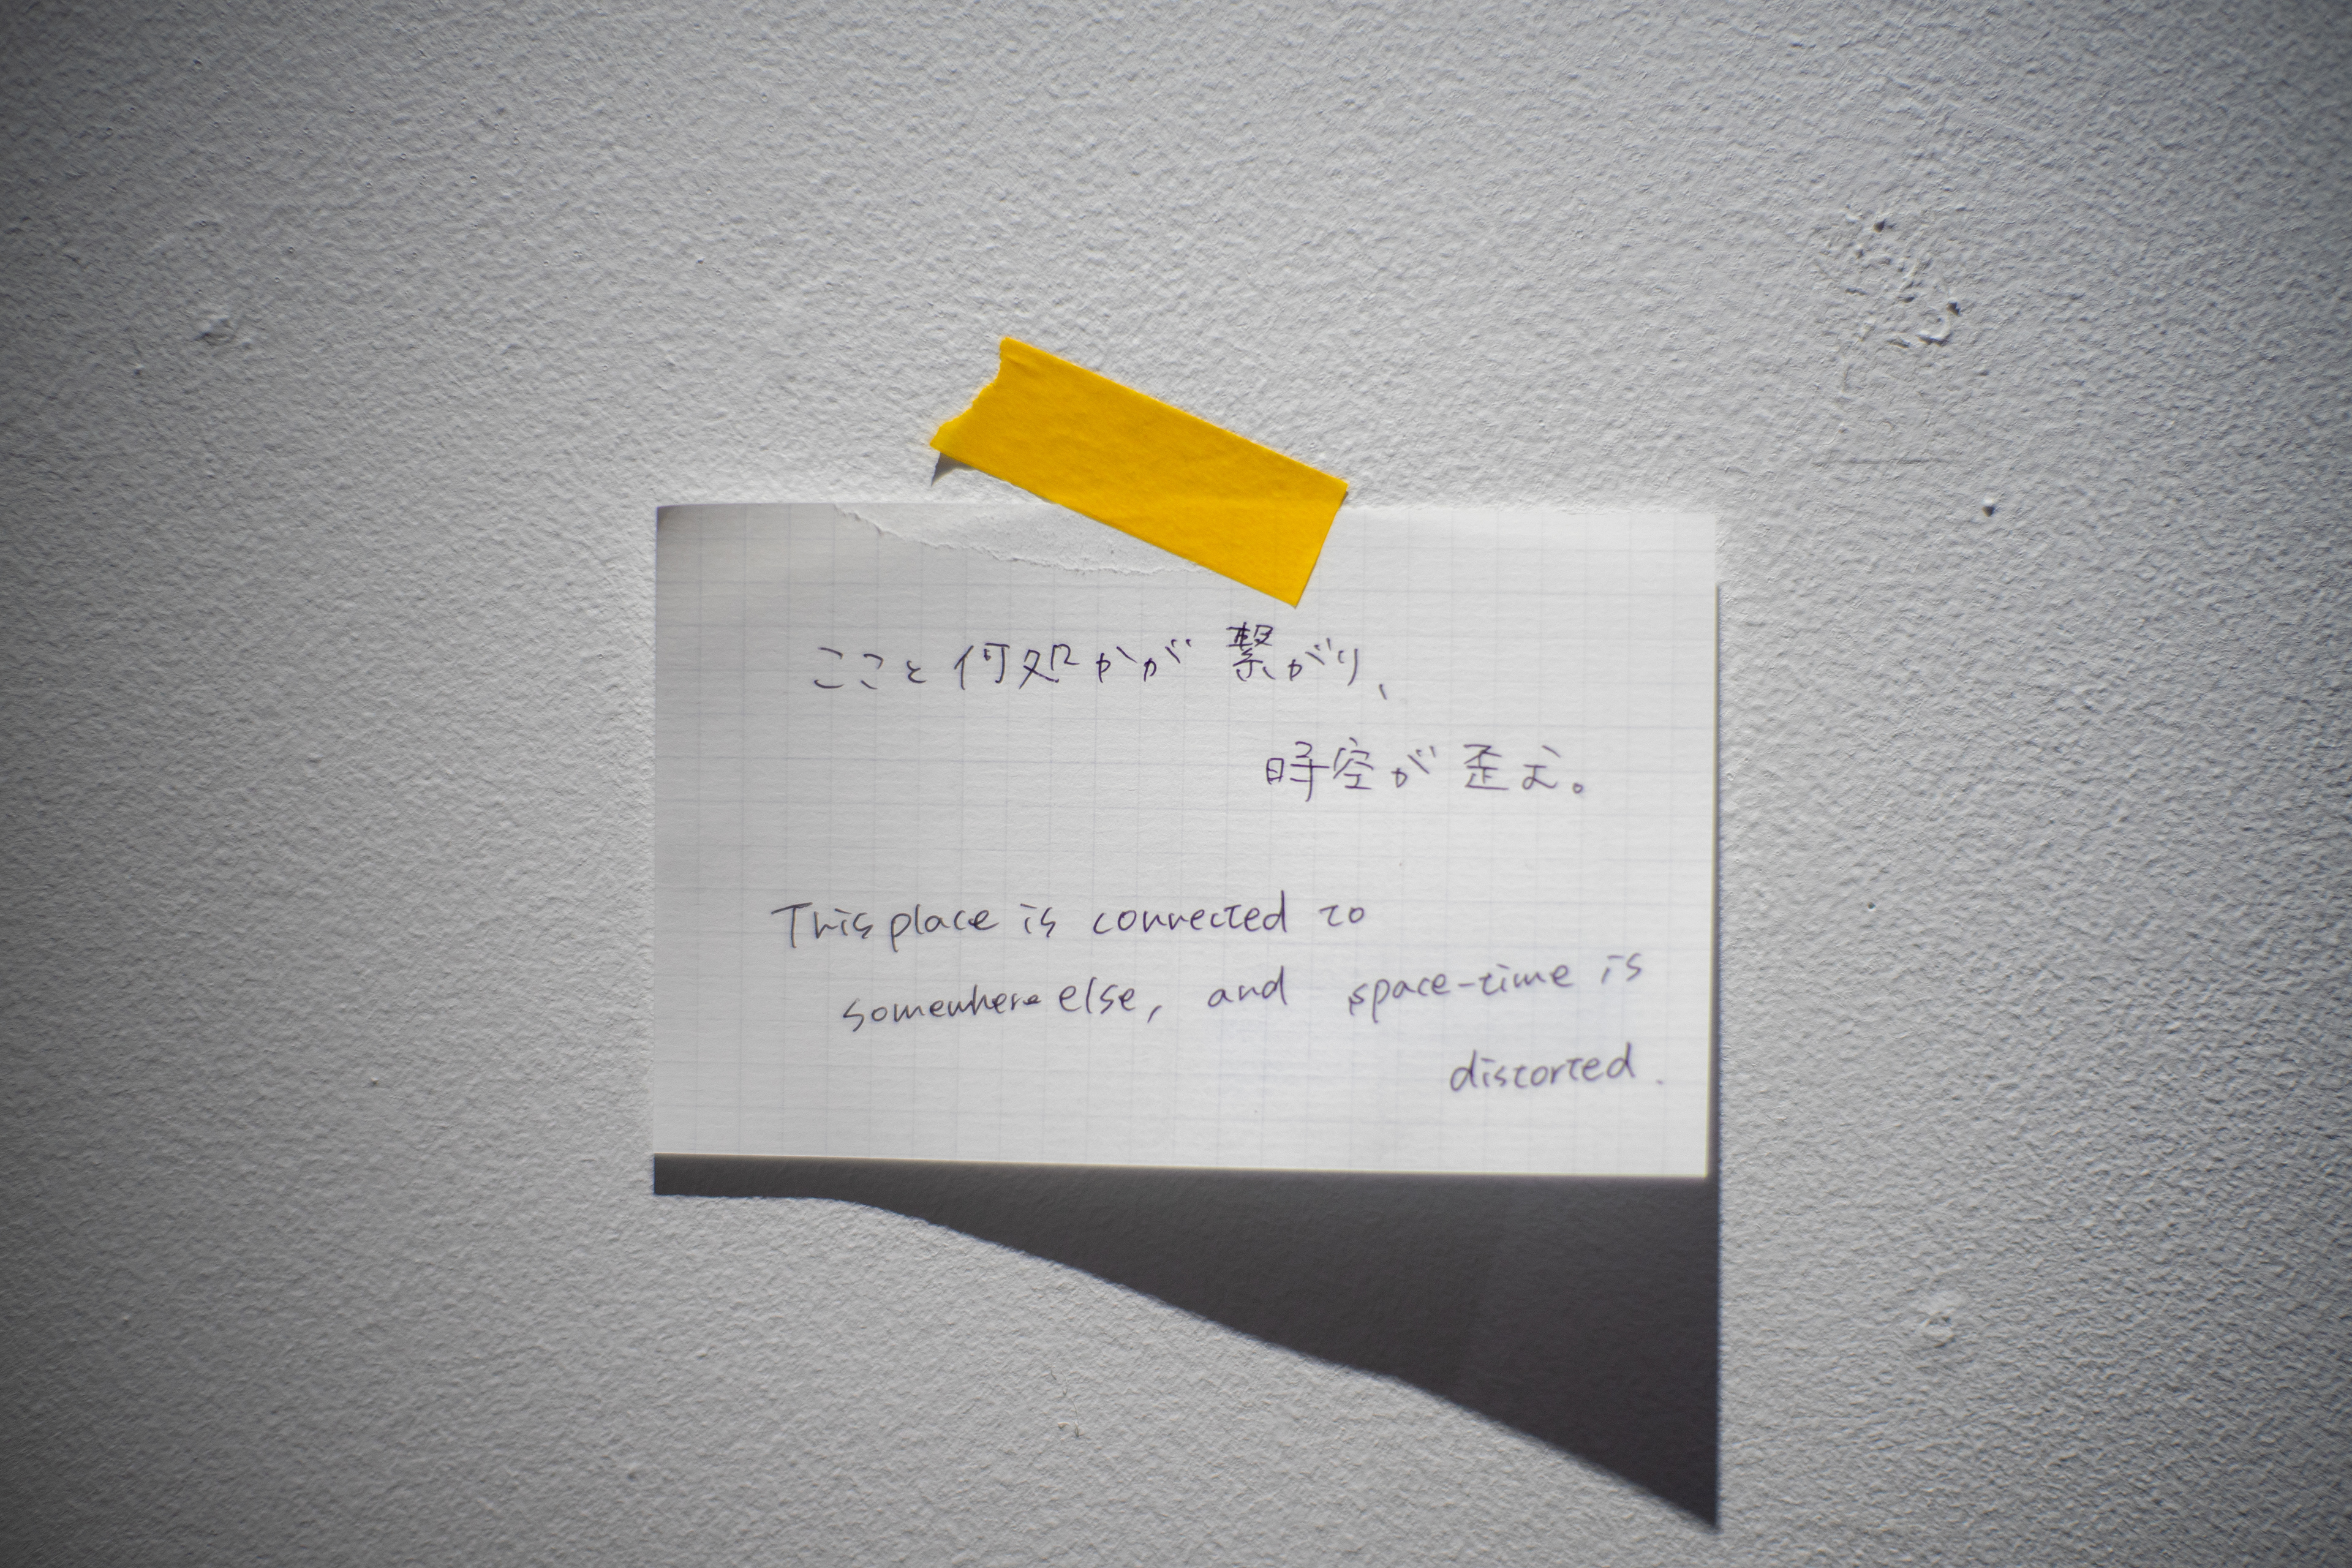 ここと何処かが繋がり、
時空が歪む。
This place is connected to
somewhere else, and space-time is
distorted.